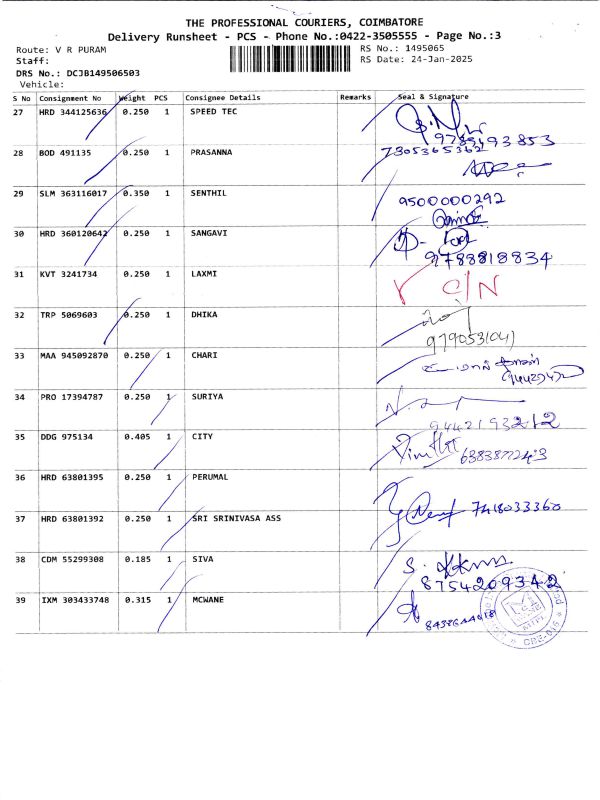 THE PROFESSIONAL COURIERS, COIMBATORE
Delivery Runsheet - PCS - Phone No.:0422-3505555 - Page No.:3
Route: V R PURAM RS No.: 1495065
Staff: RS Date: 24-Jan-2025
DRS No.: DCJB149506503
Vehicle:
S No Consignment No Weight PCS Consignee Details Remarks Seal & Signature
27 HRD 344125636 0.250 1 SPEED TEC
28 BOD 491135 0.250 1 PRASANNA 7305365362
29 SLM 363116017 0.350 1 SENTHIL 9500000292
30 HRD 360120642 0.250 1 SANGAVI
9788818834
31 KVT 3241734 0.250 1 LAXMI C/N
32 TRP 5069603 0.250 1 DHIKA
33 MAA 945092870 0.250 1 CHARI
34 PRO 17394787 0.250 1 SURIYA
9442193212
35 DDG 975134 0.405 1 CITY
36 HRD 63801395 0.250 1 PERUMAL
37 HRD 63801392 0.250 1 SRI SRINIVASA ASS 7418033360
38 CDM 55299308 0.185 1 SIVA
8754209342
39 IXM 303433748 0.315 1 MCWANE